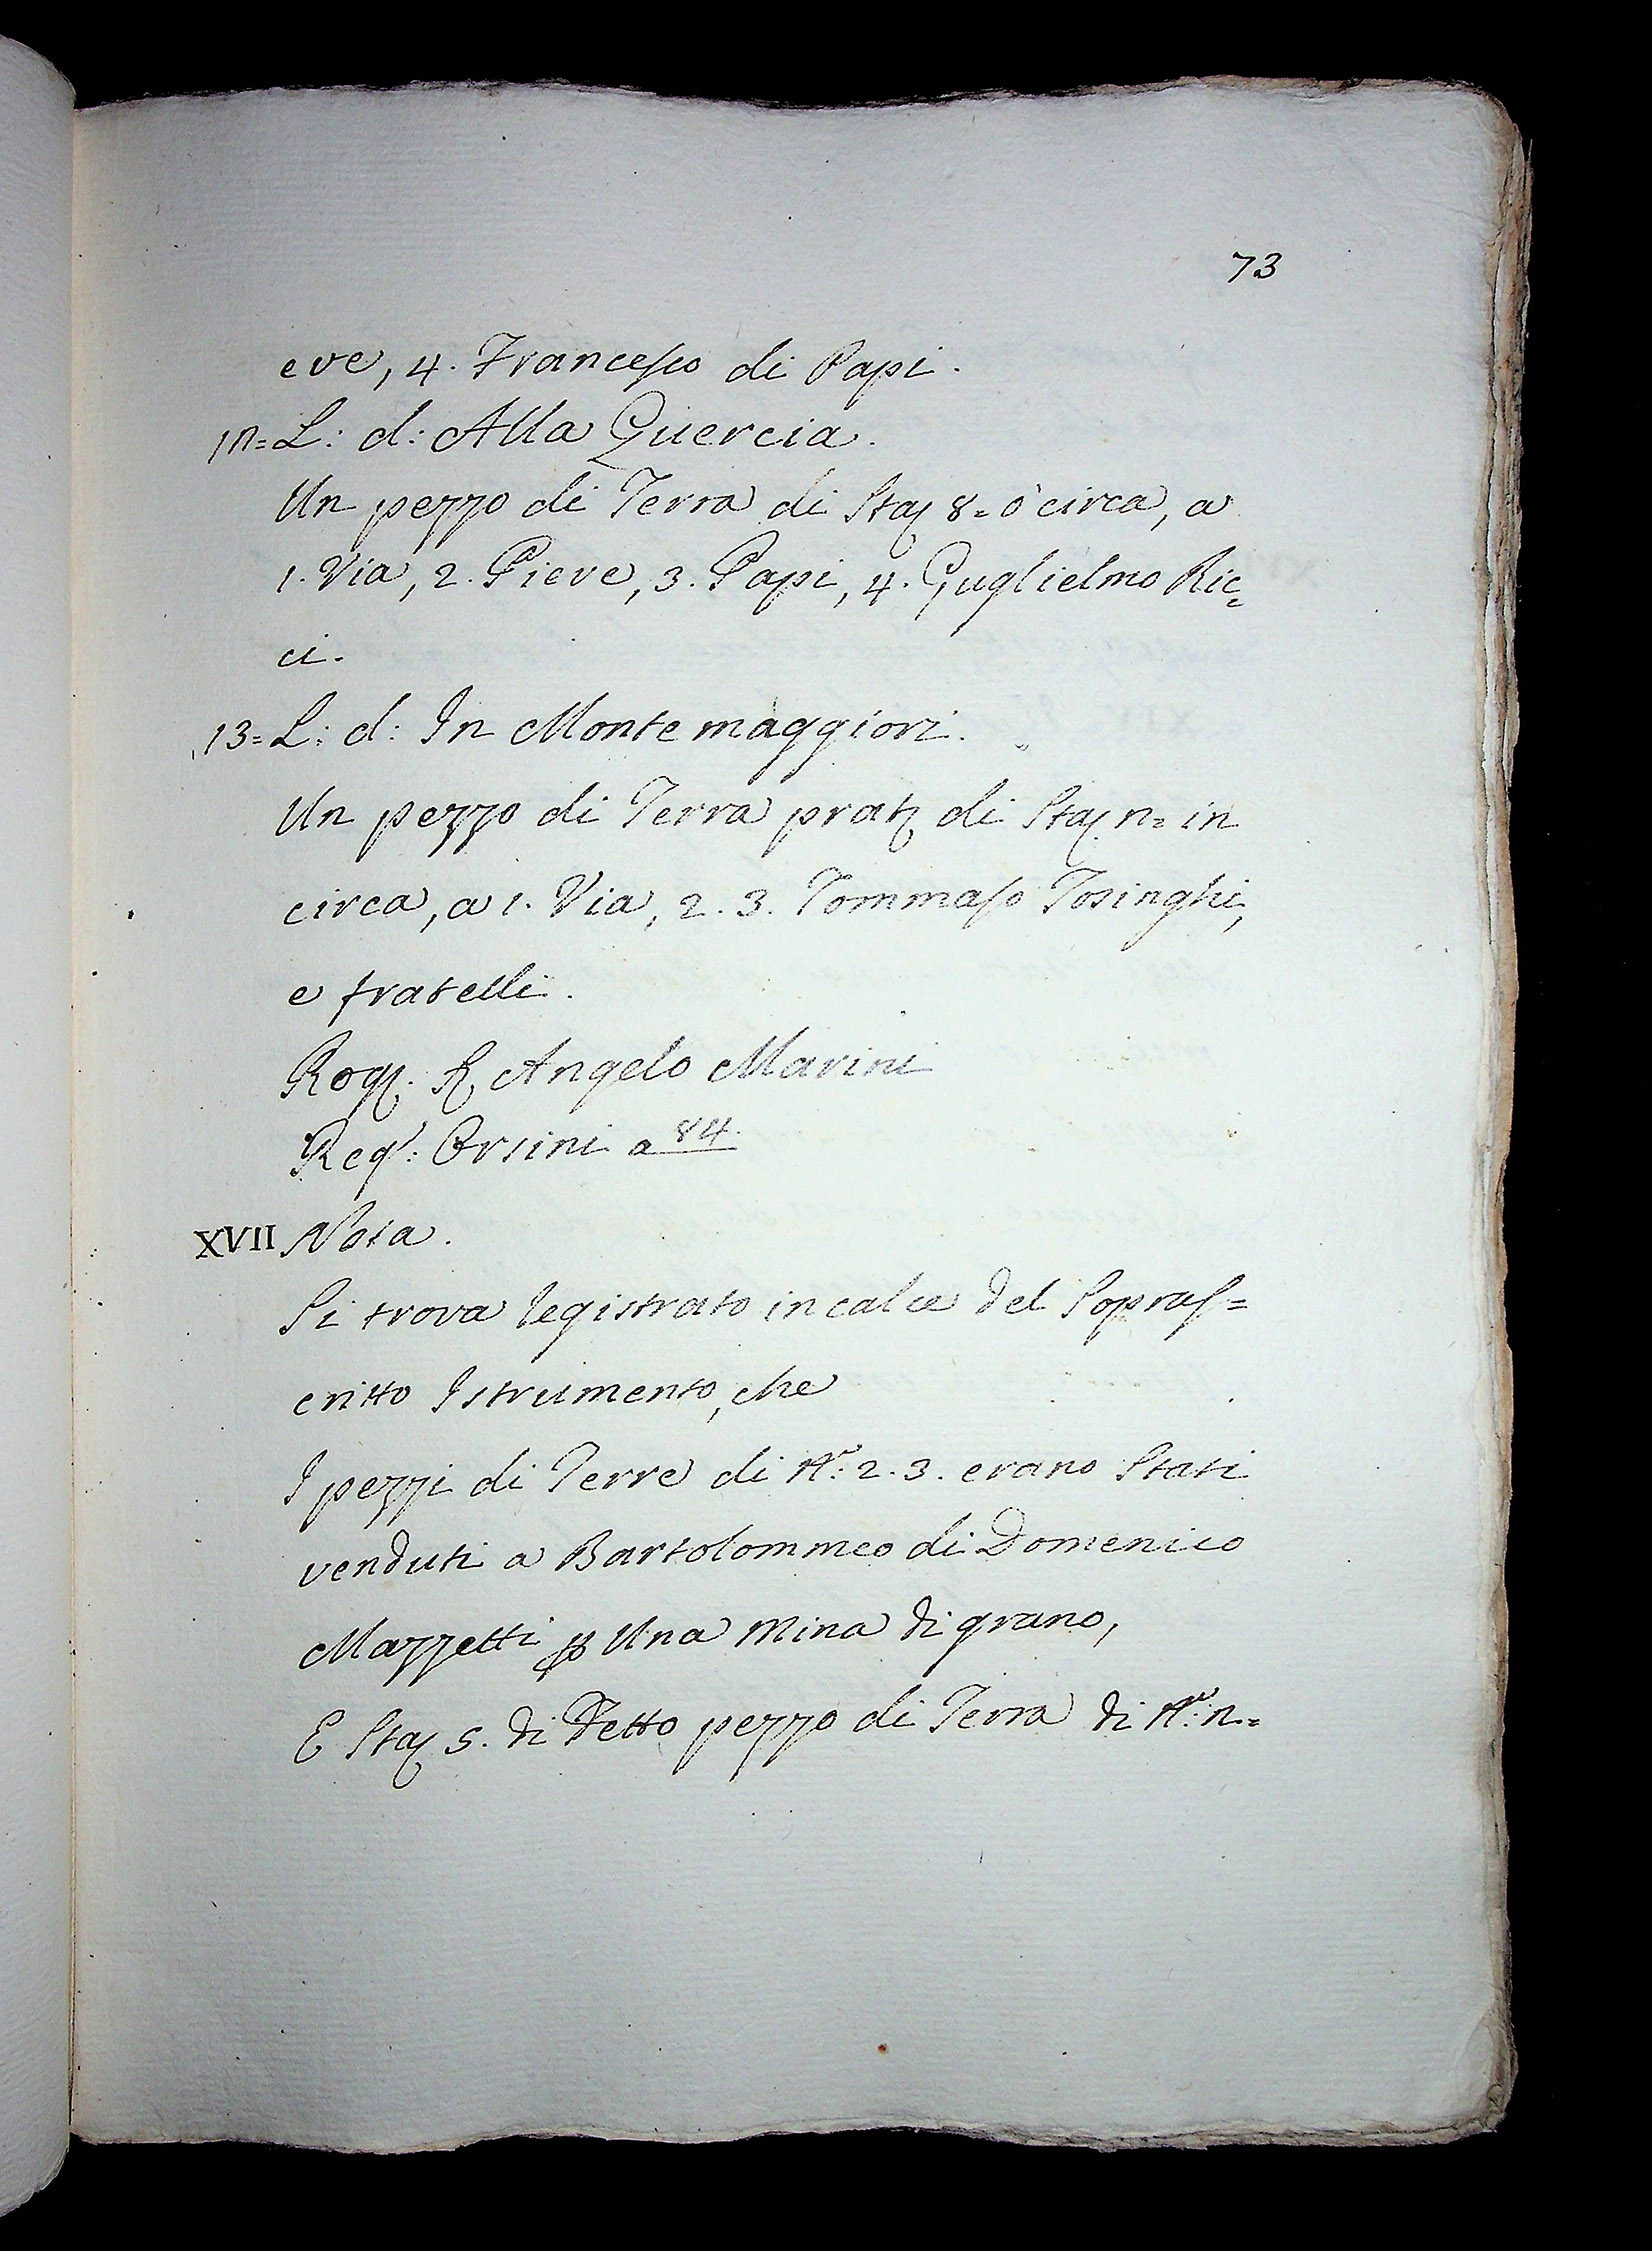 73
eve, 4. Francesco di Papi.
L: d: Alla Quercia.
Un pezzo di Terra di Staj 8= ò circa, a
1. Via, 2. Pieve, 3. Papi, 4. Guglielmo Ric=
ci.
13= L: d: In Monte maggiori.
Un pezzo di Terra prat: di Staj n= in
circa, a 1. Via, 2. 3. Tommaso Tosinghi,
e fratelli.
Rog: Angelo Marini
Reg: Orsini a 84.
XVII Nota.
Si trova registrato in calce del Sopras=
critto Istrumento, che
I pezzi di Terre di N.º: 2. 3. erano Stati
venduti a Bartolommeo di Domenico
Mazzetti Una Mina di grano,
E Staj 5. di Detto pezzo di Terra di N.º: n.=